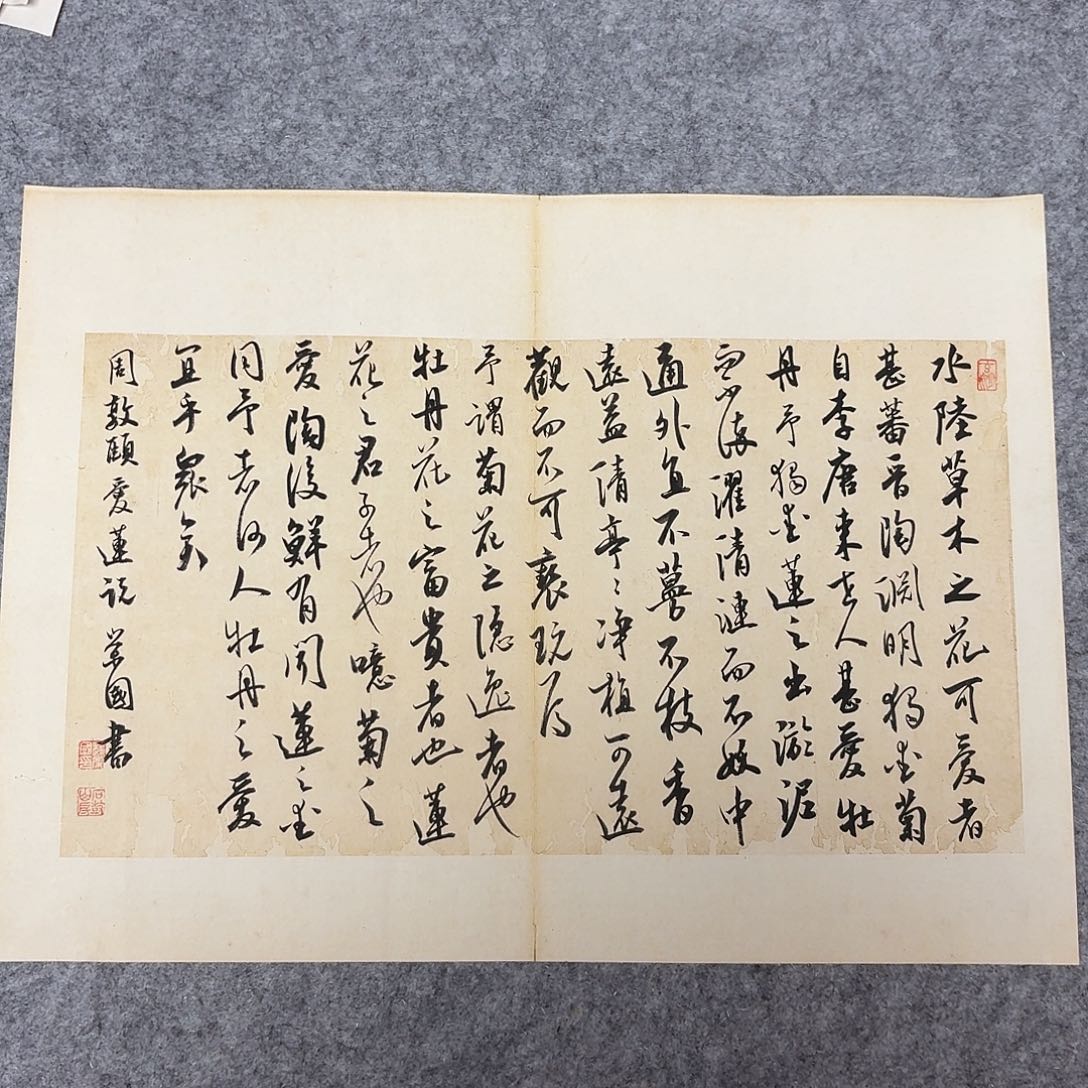 水陸草木之花可愛者
甚蕃晉陶淵明獨愛菊
自李唐来世人甚愛牡
丹予獨愛蓮之出淤泥
而不染濯清漣而不妖中
通外直不蔓不枝香
遠益清亭〻淨植可遠
觀而不可褻玩焉
予謂菊花之隱逸者也
牡丹花之富貴者也蓮
花之君子者也噫菊之
愛陶後鮮有聞蓮之愛
同予者何人牡丹之愛
宜乎衆矣
周敦頤愛蓮説 榮國書